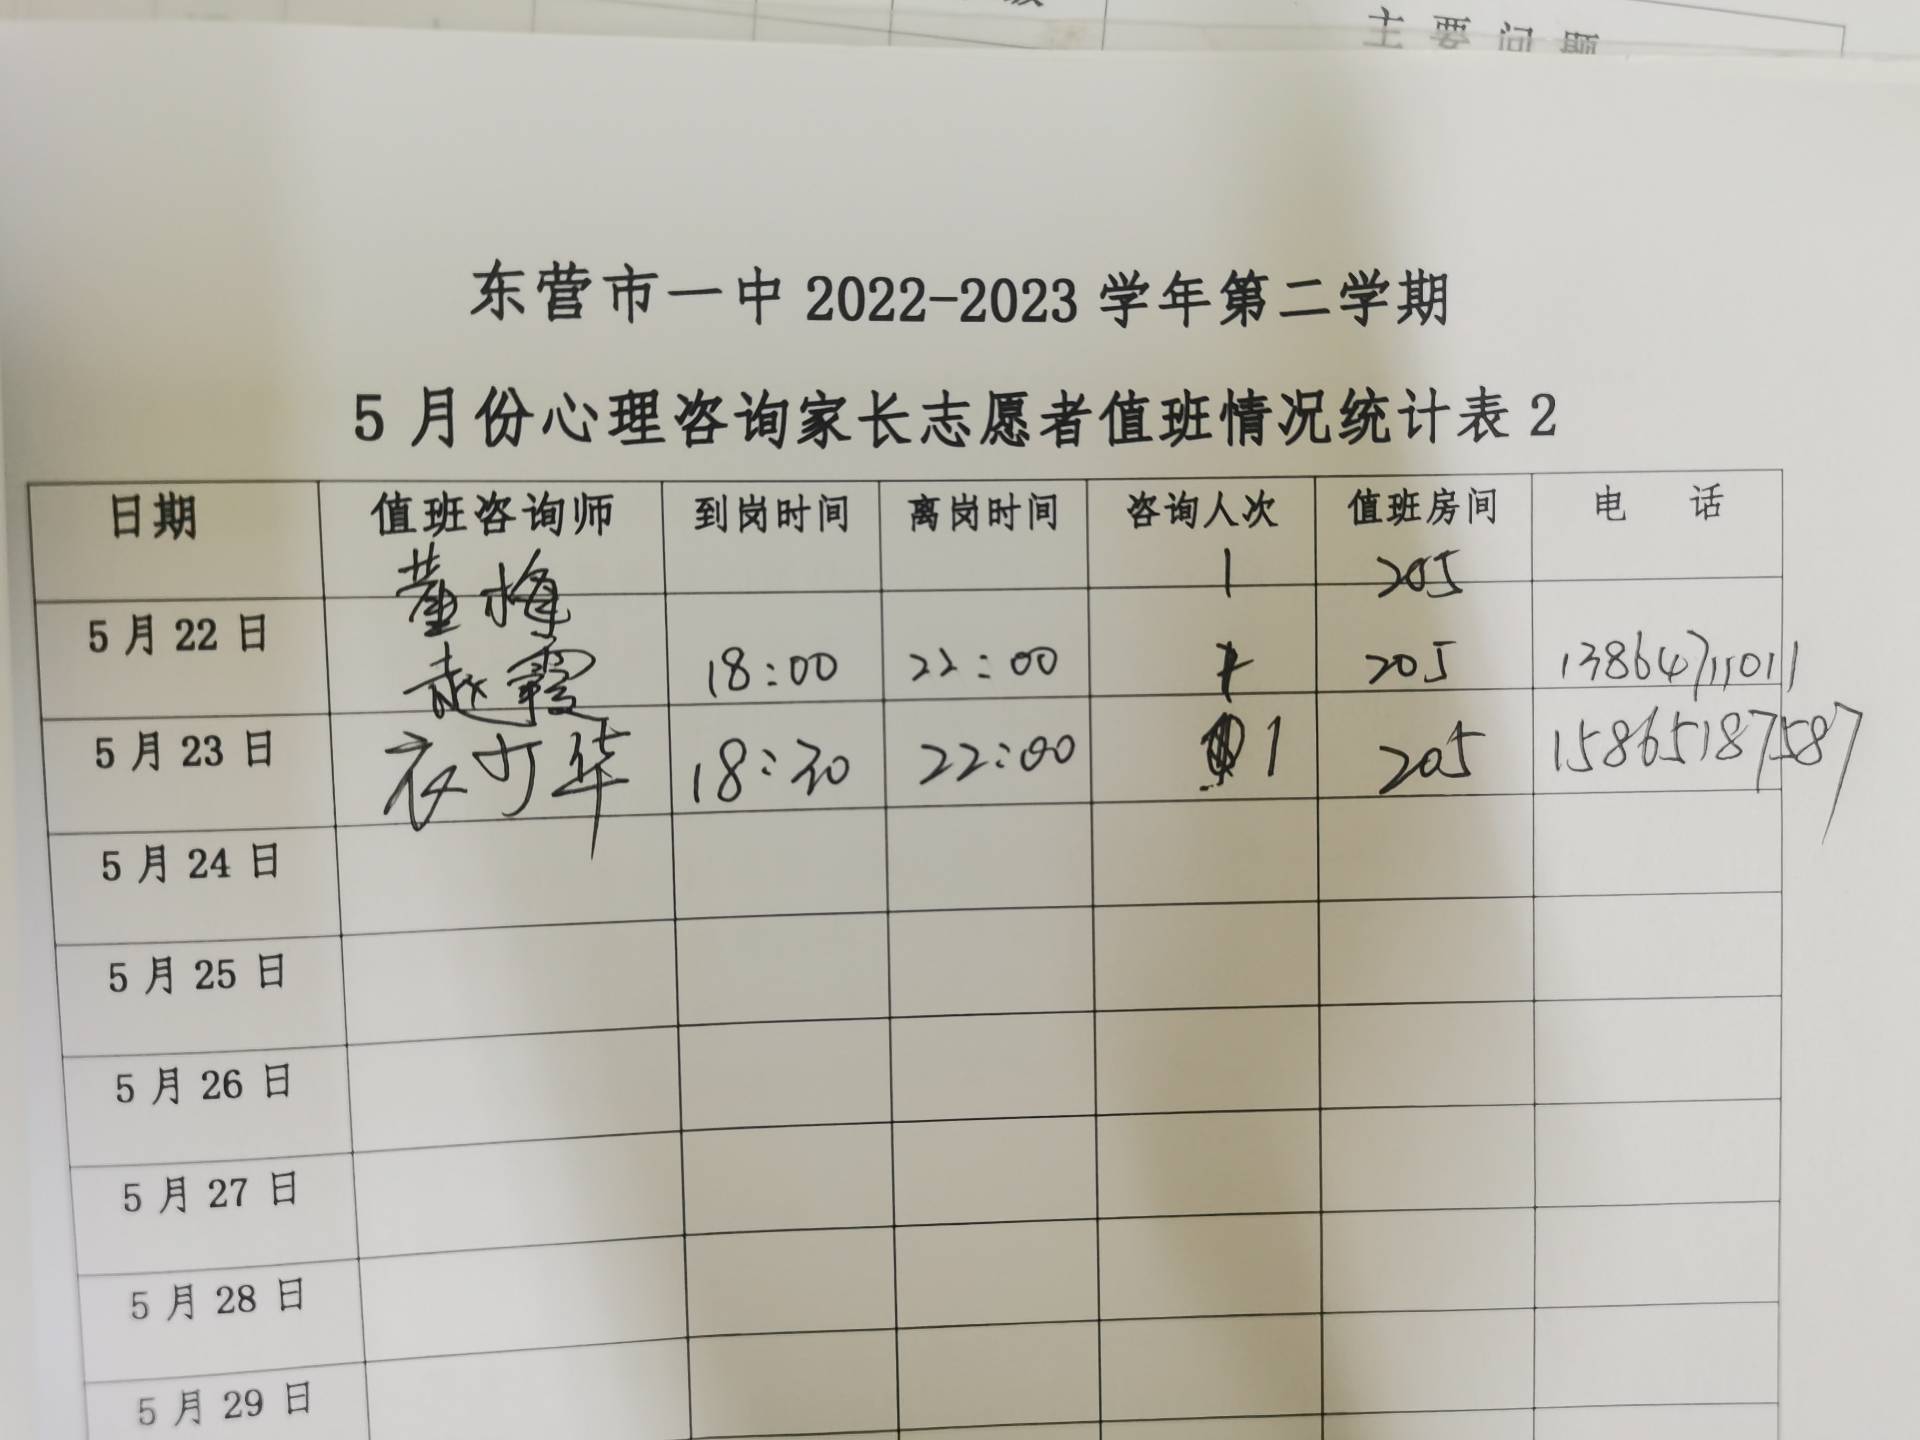 主 要 问 题
东营市一中 2022-2023 学年第二学期
5 月份心理咨询家长志愿者值班情况统计表 2
日期 值班咨询师 到岗时间 离岗时间 咨询人次 值班房间 电 话
董梅 1 205
5 月 22 日 赵霞 18:00 22:00 1 205 13864711011
5 月 23 日 衣可华 18:30 22:00 1 205 15865187587
5 月 24 日
5 月 25 日
5 月 26 日
5 月 27 日
5 月 28 日
5 月 29 日